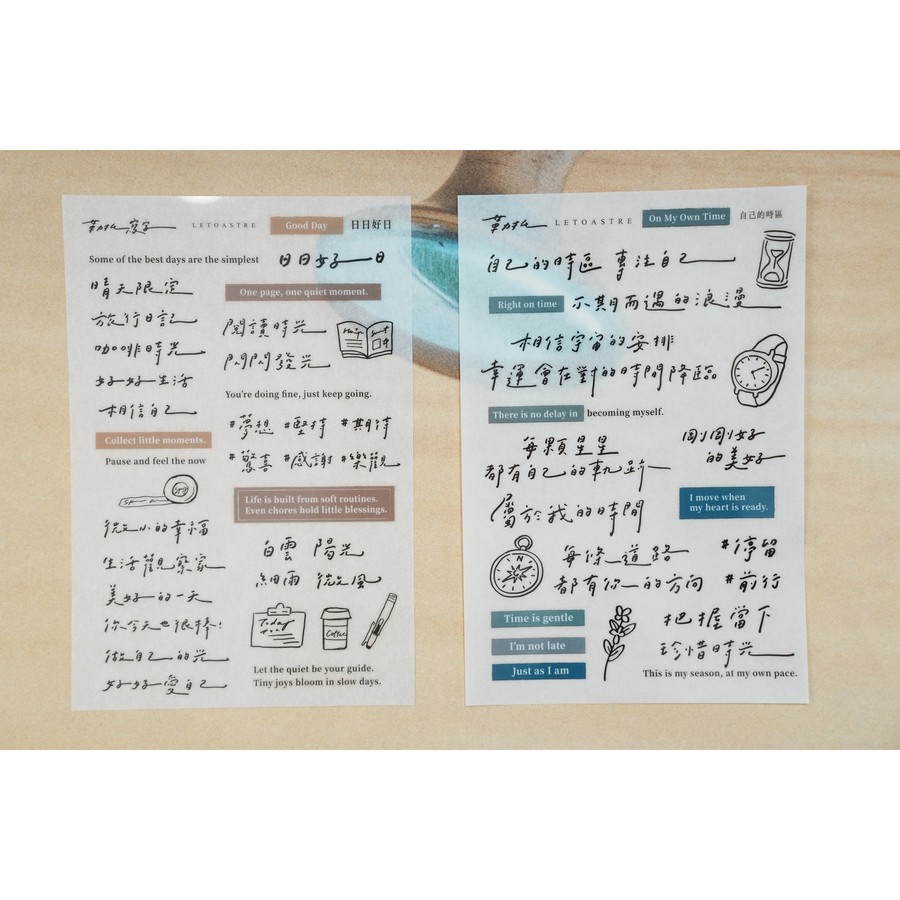 LETOASTRE
Good Day
日日好日
Some of the best days are the simplest
日日好日
晴天限定
旅行日記
咖啡時光
好好生活
相信自己
Collect little moments.
Pause and feel the now
微小的幸福
生活觀察家
美好的一天
你今天也很棒!
做自己的光
好好愛自己
One page, one quiet moment.
閱讀時光
閃閃發光
You're doing fine, just keep going.
#夢想 #堅持 #期待
#驚喜 #感謝 #樂觀
Life is built from soft routines.
Even chores hold little blessings.
白雲 陽光
細雨 微風
Today
Coffee
Let the quiet be your guide.
Tiny joys bloom in slow days.
LETOASTRE
On My Own Time
自己的時區
自己的時區 專注自己
Right on time
不期而遇的浪漫
相信宇宙的安排
幸運會在對的時間降臨
There is no delay in becoming myself.
每顆星星
都有自己的軌跡
剛剛好
的美好
屬於我的時間
I move when
my heart is ready.
N
每條道路
都有你的方向
#停留
#前行
Time is gentle
I'm not late
Just as I am
把握當下
珍惜時光
This is my season, at my own pace.